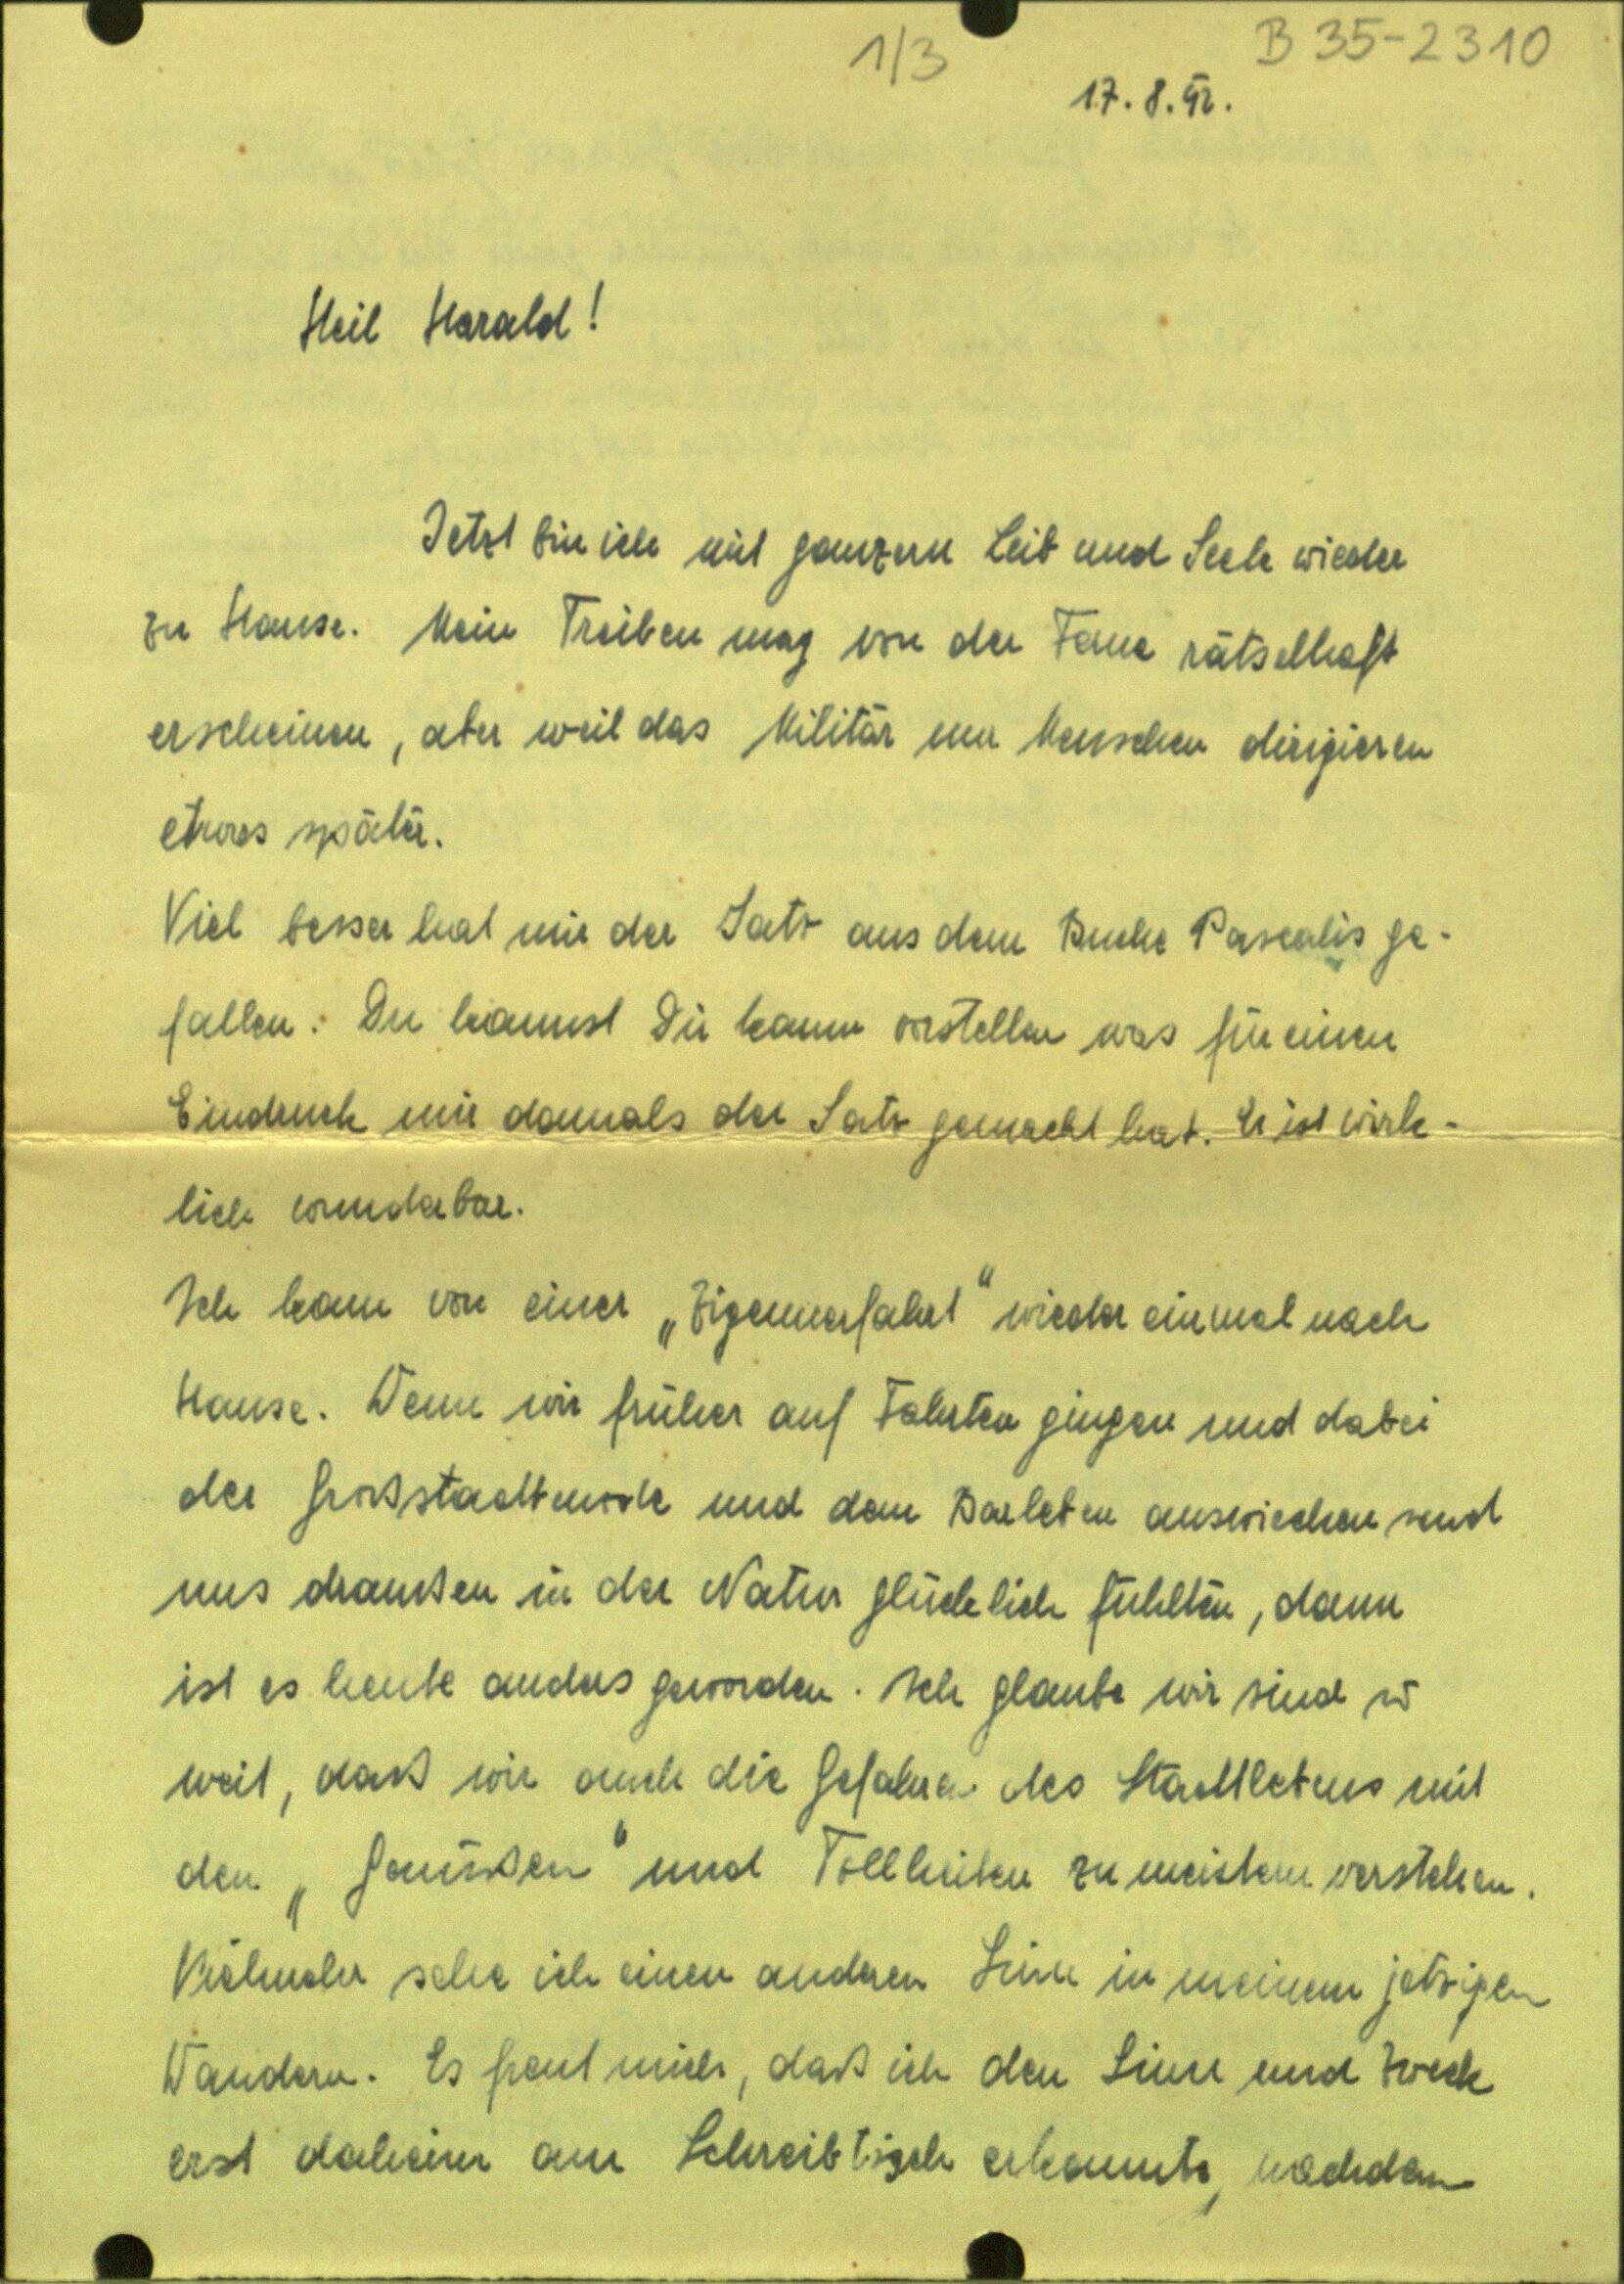 1/3
B 35-2310
17.8.42.
Heil Harald!
Jetzt bin ich mit ganzem Leib und Seele wieder
zu Hause. Mein Treiben mag von der Ferne rätselhaft
erscheinen, aber weil das Militär nur Menschen dirigieren
etwas später.
Viel besser hat mir der Satz aus dem Buche Pascalis ge-
fallen. Du kannst Dir kaum vorstellen was für einen
Eindruck mir damals der Satz gemacht hat. Er ist wirk-
lich wunderbar.
Ich kam von einer „Zigeunerfahrt" wieder einmal nach
Hause. Wenn wir früher auf Fahrten gingen und dabei
der Großstadtmode und dem Barleben auswichen und
uns draußen in der Natur glücklich fühlten, dann
ist es heute anders geworden. Ich glaube wir sind so
weit, daß wir auch die Gefahren des Stadtlebens mit
den „Genüßen" und Tollheiten zu meistern verstehen.
Vielmehr sehe ich einen anderen Sinn in meinem jetzigen
Wandern. Es freut mich, daß ich den Sinn und Zweck
erst daheim am Schreibtisch erkannte, nachdem